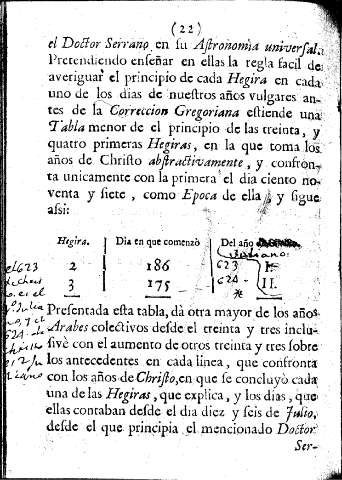 (22)
el Doctor Serrano en su Astronomia universal.
Pretendiendo enseñar en ellas la regla facil de
averiguar el principio de cada Hegira en cada
uno de los dias de nuestros años vulgares an-
tes de la Correccion Gregoriana estiende una
Tabla menor de el principio de las treinta, y
quatro primeras Hegiras, en la que toma los
años de Christo abstractivamente, y confron-
ta unicamente con la primera el dia ciento no-
venta y siete, como Epoca de ella, y sigue
assi:
Hegira. Dia en que comenzò Del año
Juliano.
2 186 623 I.
3 175 624 II.
Presentada esta tabla, dá otra mayor de los años
Arabes colectivos desde el treinta y tres inclu-
sivè con el aumento de otros treinta y tres sobre
los antecedentes en cada linea, que confronta
con los años de Christo, en que se concluyò cada
una de las Hegiras, que explica, y los dias, que
ellas contaban desde el dia diez y seis de Julio,
desde el que principia el mencionado Doctor
Ser-
el 623